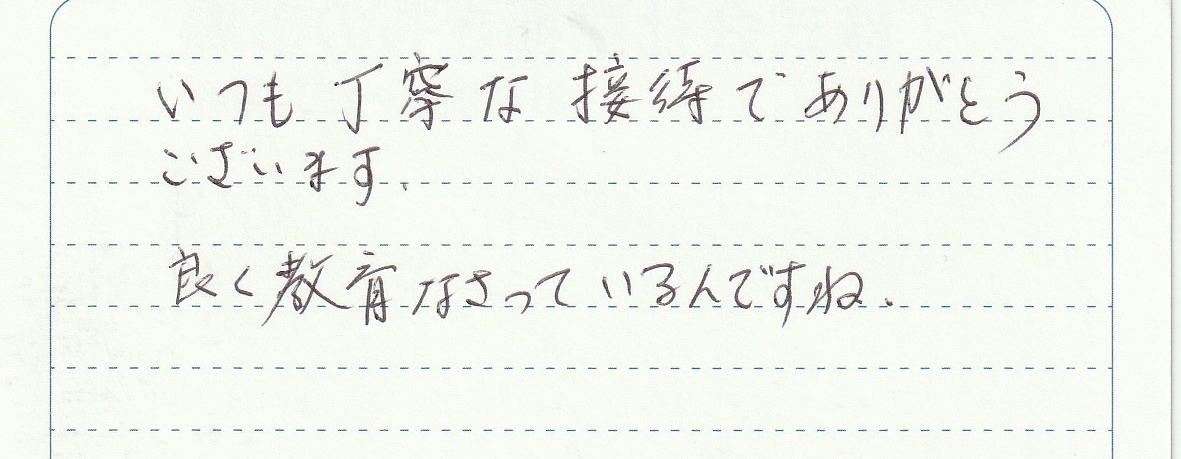 いつも丁寧な接待でありがとう
ございます.
良く教育なさっているんですね.